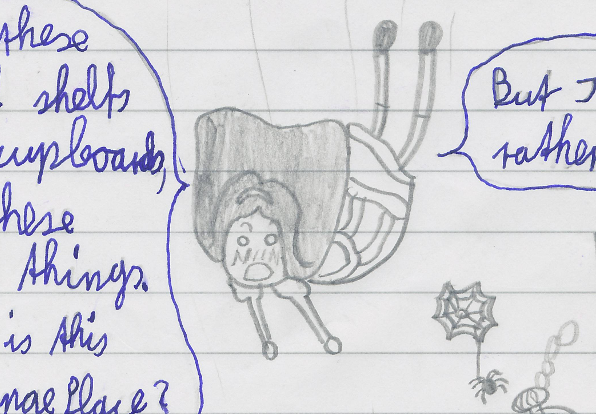 these
shelfs
cupboards,
these
things.
is this
Place?
But I
rather